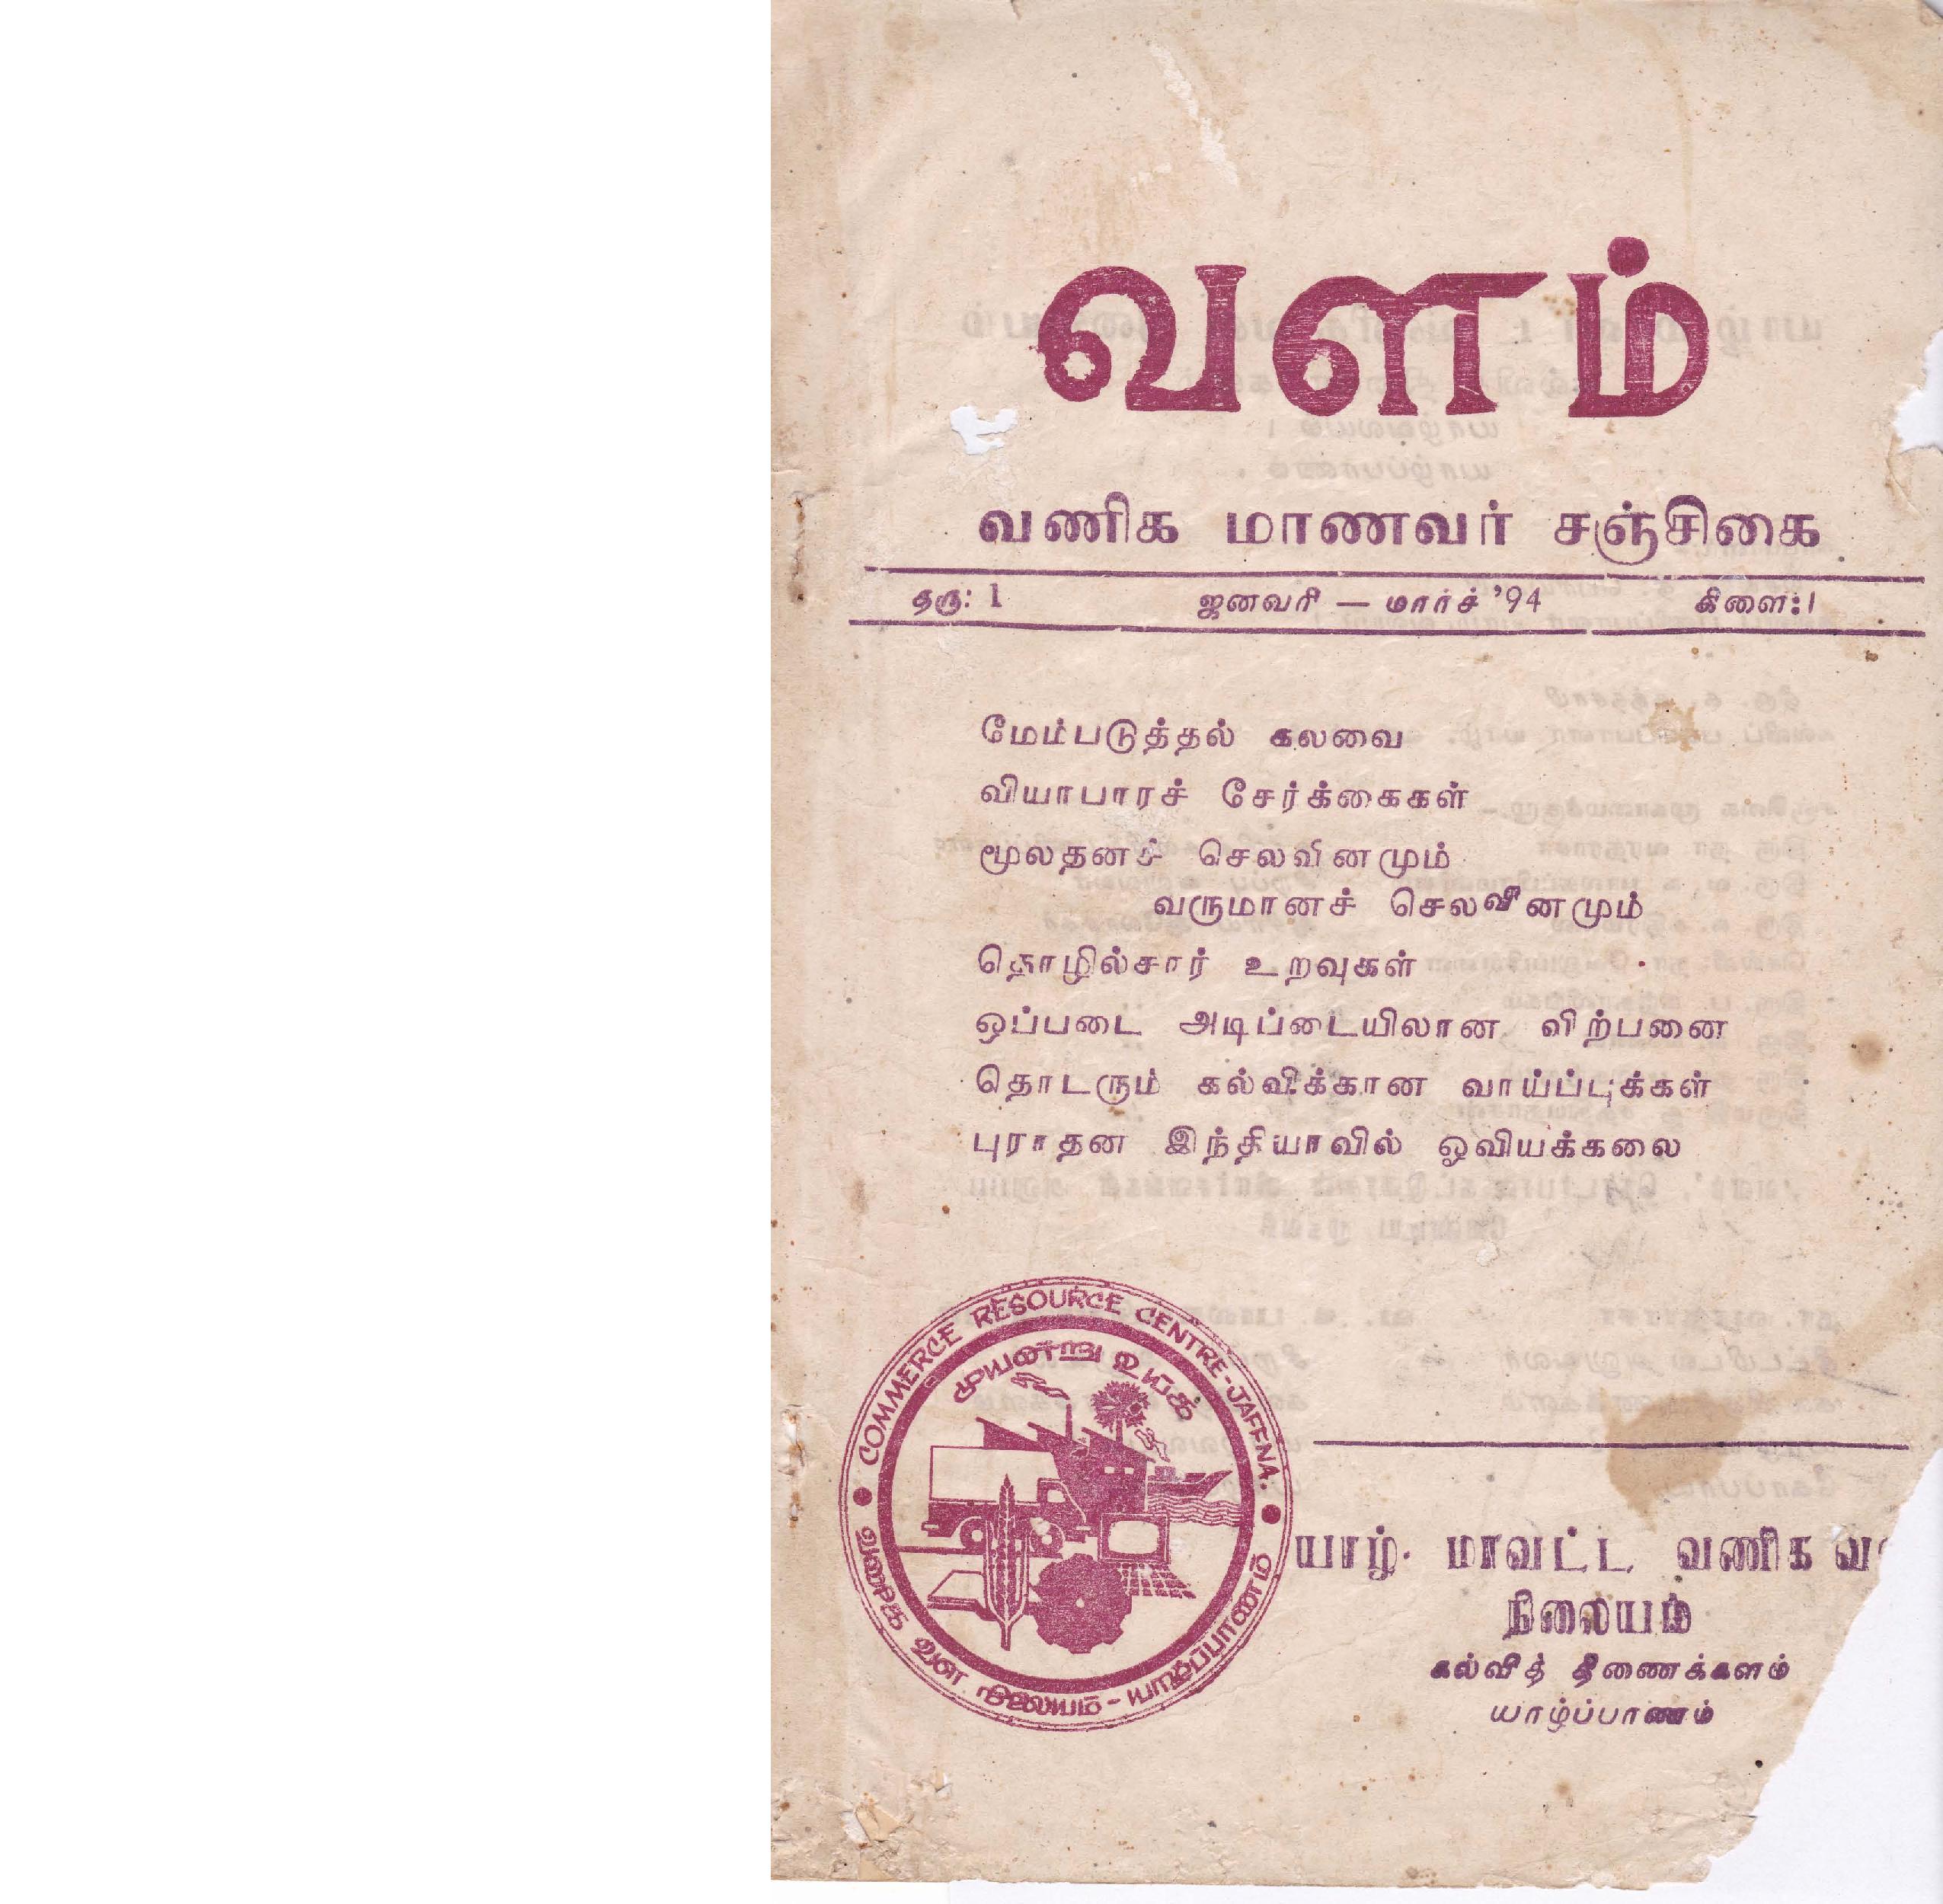 வளம்
வணிக மாணவர் சஞ்சிகை
தரு: 1 ஜனவரி — மார்ச் '94 கிளை: 1
மேம்படுத்தல் கலவை
வியாபாரச் சேர்க்கைகள்
மூலதனச் செலவினமும்
வருமானச் செலவினமும்
தொழில்சார் உறவுகள்
ஒப்படை அடிப்டையிலான விற்பனை
தொடரும் கல்விக்கான வாய்ப்புக்கள்
புராதன இந்தியாவில் ஓவியக்கலை
COMMERCE RESOURCE CENTRE-JAFFNA.
முயன்று உய்க
வணிக வள நிலையம் - யாழ்ப்பாணம்
யாழ். மாவட்ட வணிக
நிலையம்
கல்வித் திணைக்களம்
யாழ்ப்பாணம்